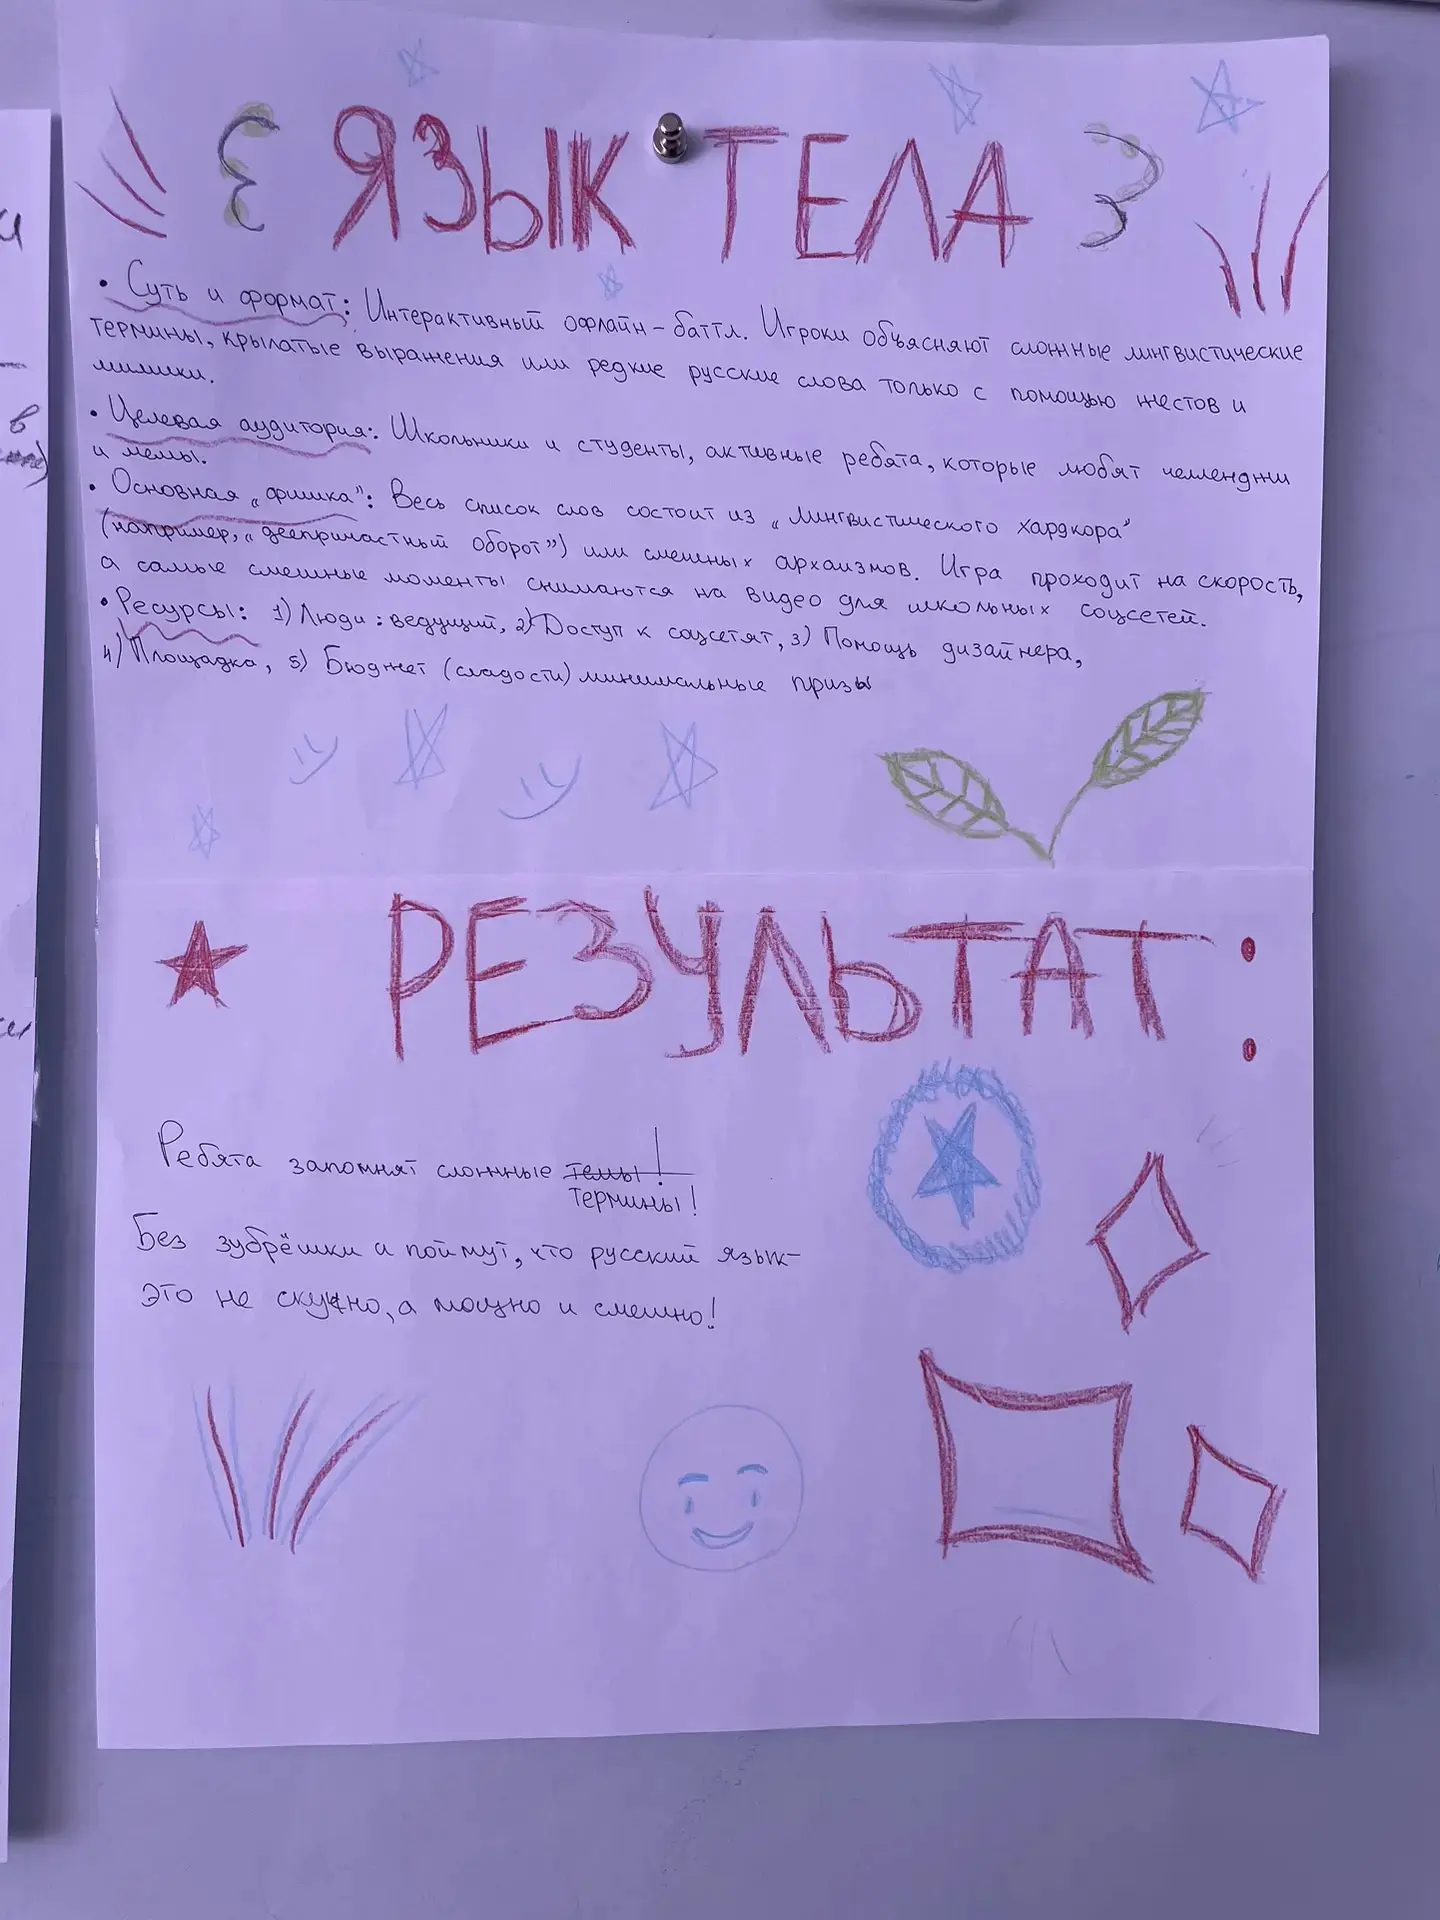 ЯЗЫК ТЕЛА
• Суть и формат: Интерактивный офлайн-баттл. Игроки объясняют сложные лингвистические
термины, крылатые выражения или редкие русские слова только с помощью жестов и
мимики.
• Целевая аудитория: Школьники и студенты, активные ребята, которые любят челленджи
и мемы.
• Основная „фишка": Весь список слов состоит из „лингвистического хардкора"
(например, „деепричастный оборот") или смешных архаизмов. Игра проходит на скорость,
а самые смешные моменты снимаются на видео для школьных соцсетей.
• Ресурсы: 1) Люди: ведущий, 2) Доступ к соцсетят, 3) Помощь дизайнера,
4) Площадка, 5) Бюджет (сладости) минимальные призы
РЕЗУЛЬТАТ:
Ребята запомнят сложные темы!
термины!
Без зубрёшки и поймут, что русский язык-
это не скучно, а мощно и смешно!
и
в